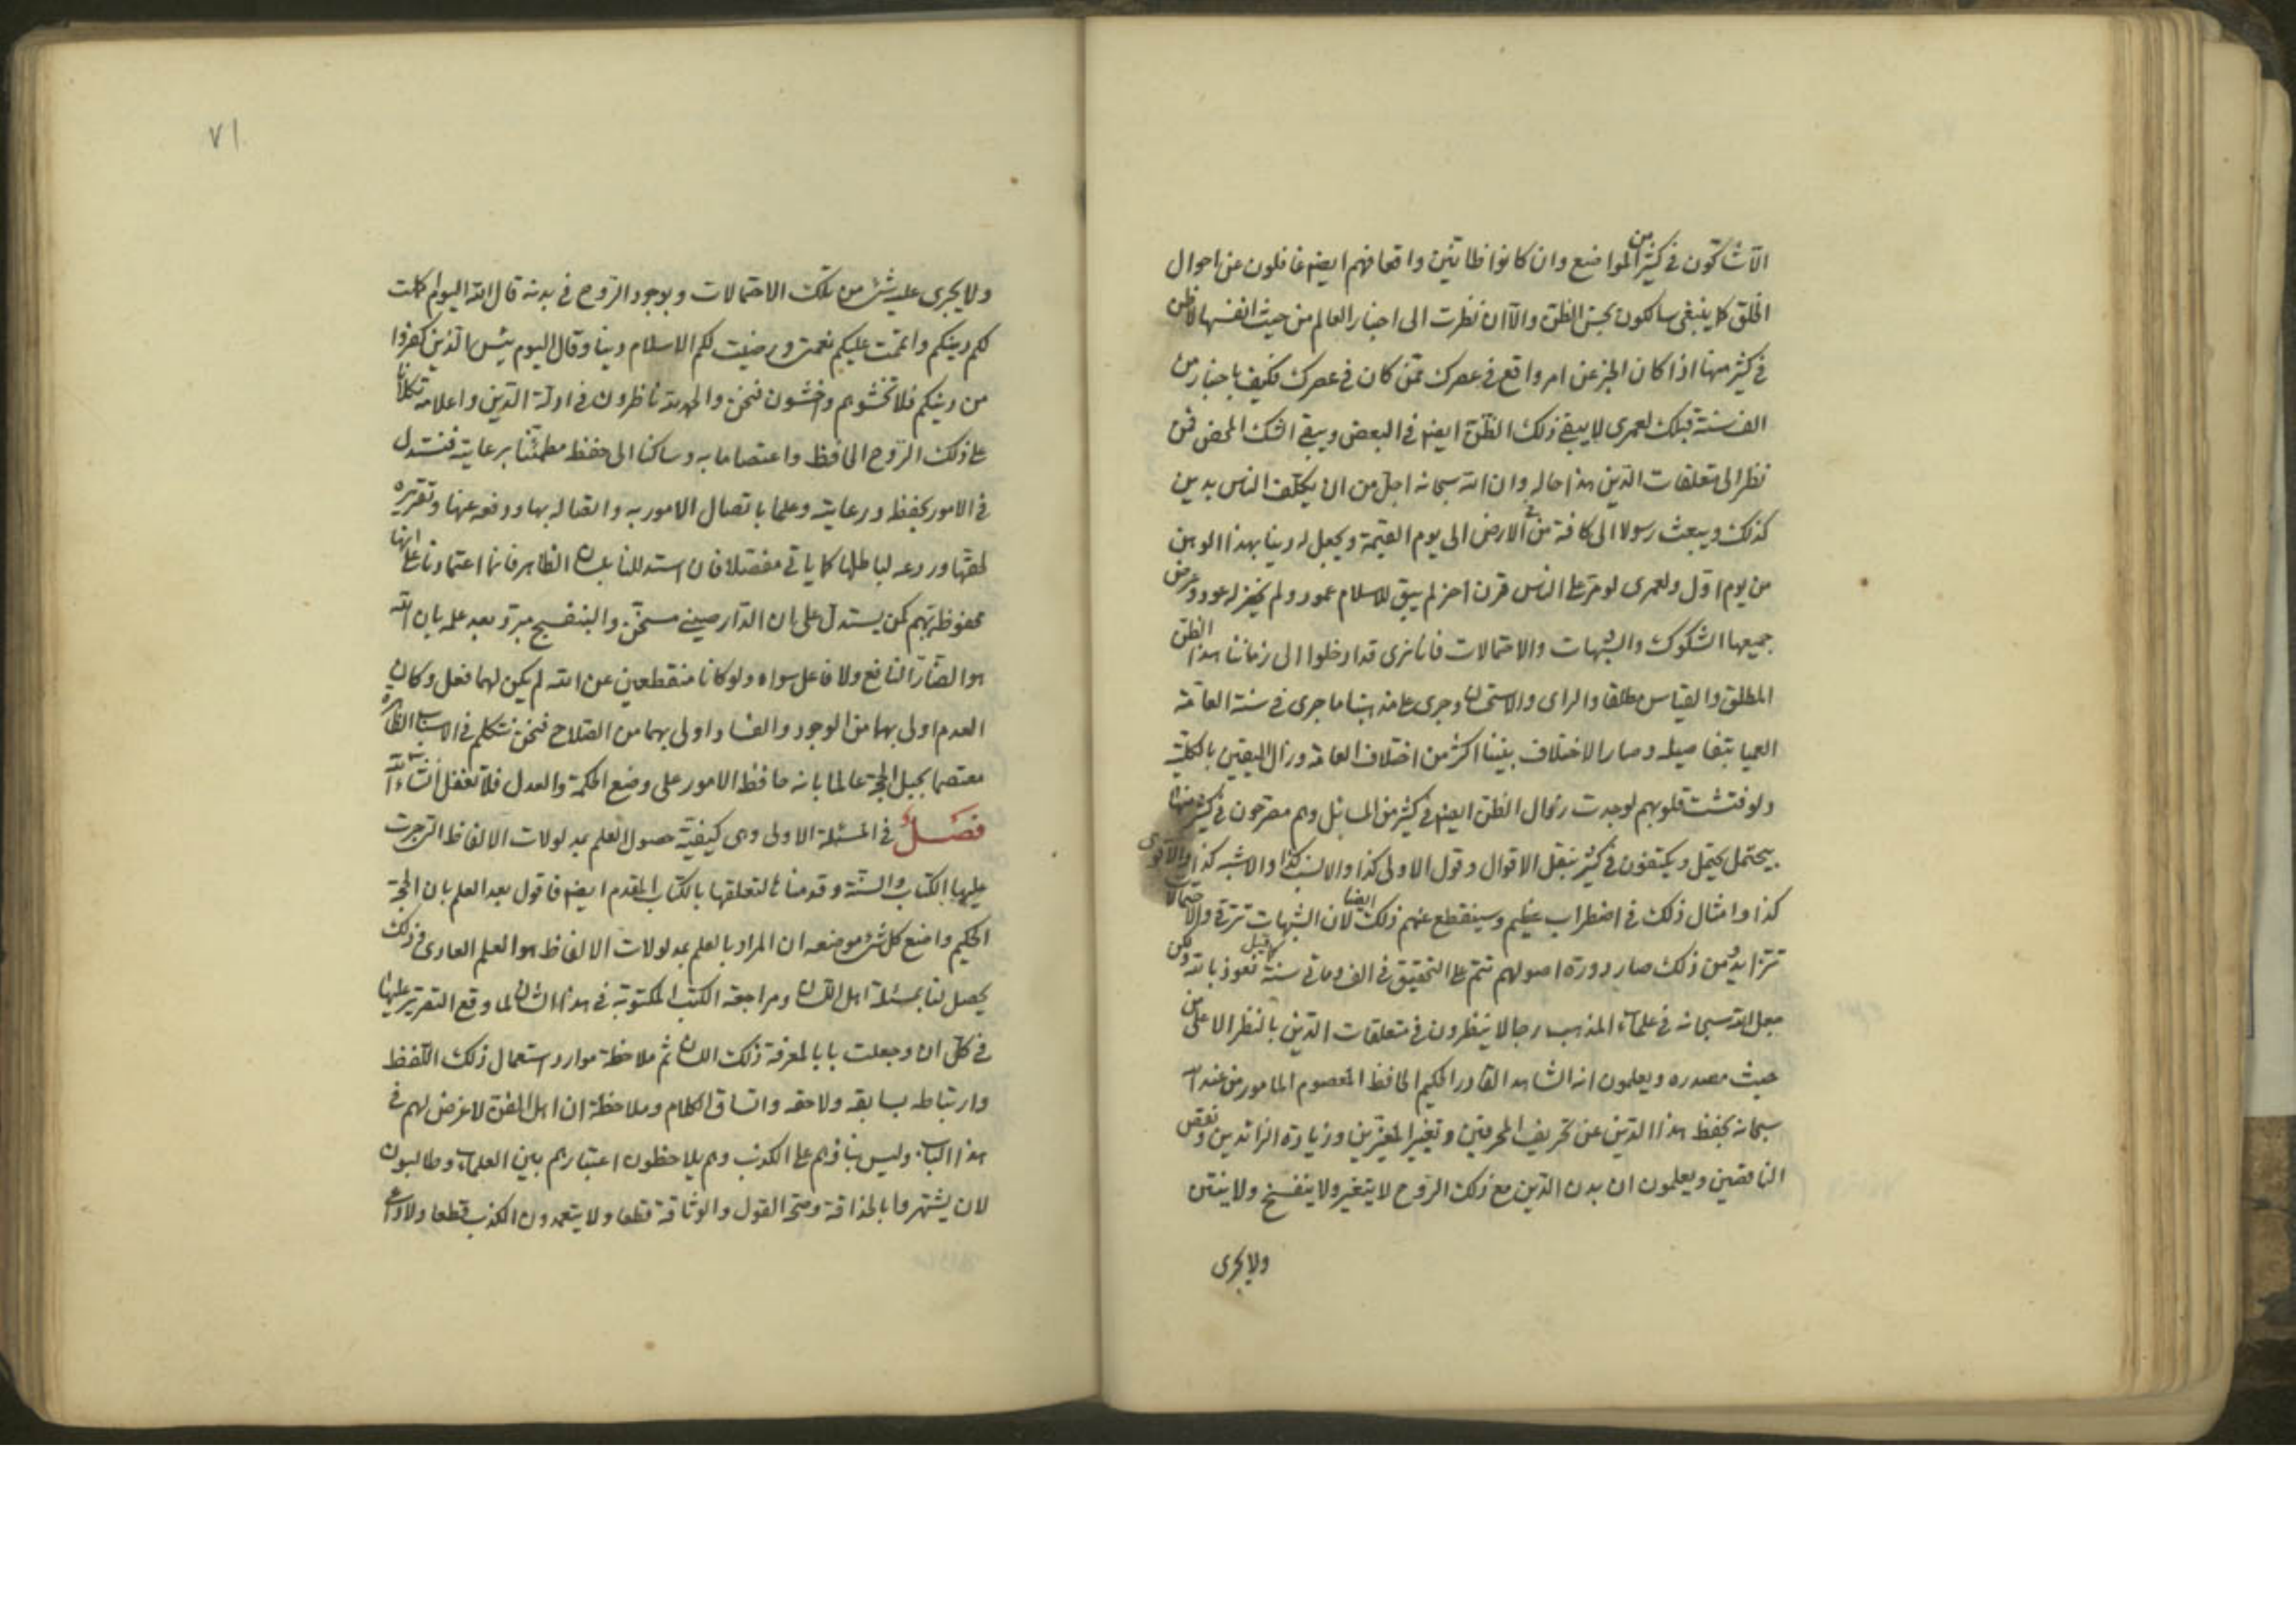 الا شاكون في كثير من المواضع وان كانوا ظانين واقعا فهم ايضا غافلون عن احوال
الخلق كما ينبغي سالكون بحسن الظن والا ان نظرت الى اخبار العالم من حيث انفسها لا ظن
في كثير منها اذا كان المخبر عن امر واقع في عصرك ممن كان في عصرك فكيف باخبار من
الف سنة قبلك لعمري لا يبقى ذلك الظن ايضا في البعض ويبقى الشك المحض فمن
نظر الى متعلقات الدين هذا حاله وان الله سبحانه اجل من ان يكلف الناس بدين
كذلك ويبعث رسولا الى كافة من في الارض الى يوم القيمة ويجعل له دينا بهذا الوهن
من يوم اول ولعمري لو مر على الناس قرن اخر لم يبق للاسلام عمود ولم يخضر له عود وعرض
جميعها الشكوك والشبهات والاحتمالات فانا نرى قد ادخلوا الى زماننا هذا الظن
المطلق والقياس مطلقا والراى والاستحسان وجرى على مذهبنا ما جرى في سنة العامة
العميا بتفاصيله وصار الاختلاف بيننا اكثر من اختلاف العامة وزال اليقين بالكلية
ولو فتشت قلوبهم لوجدت زوال الظن ايضا في كثير من المسائل وهم مصرحون في كثير منها
بيحتمل يحتمل ويكتفون في كثير بنقل الاقوال وقول الاولى كذا والانسب كذا والاشبه كذا والاقوى
كذا وامثال ذلك في اضطراب عظيم وسينقطع عنهم ذلك ايضا لان الشبهات تترة والاحتمالات
تتزايد ومن ذلك صار دورة اصولهم تتم على التحقيق في الف وماتي سنة كما قيل نعوذ بالله ولكن
جعل الله سبحانه في علماء المذهب رجالا ينظرون في متعلقات الدين بالنظر الاعلى من
حيث مصدره ويعلمون انه الشاهد القادر الحكيم الحافظ المعصوم المامور من عند الله
سبحانه بحفظ هذا الدين عن تحريف المحرفين وتغيير المغيرين وزيادة الزائدين ونقص
الناقصين ويعلمون ان بدن الدين مع ذلك الروح لا يتغير ولا يتفسخ ولا ينتن
ولا يجرى
٧١
ولا يجرى عليه شئ من تلك الاحتمالات وبوجود الروح في بدنه قال الله اليوم اكملت
لكم دينكم واتممت عليكم نعمتي ورضيت لكم الاسلام دينا وقال اليوم يئس الذين كفروا
من دينكم فلا تخشوهم واخشون فنحن والحمد لله ناظرون في ادلة الدين واعلامه تكلانا
على ذلك الروح الحافظ واعتصاما به وساكنا الى حفظه مطمئنا برعايته فنستدل
في الامور بحفظه ورعايته وعلما باتصال الامور به واتصاله بها ودفعه عنها وتقريره
لحقها وردعه لباطلها كما ياتي مفصلا فان استدللنا بلسان الظاهر فانما اعتمادنا على انها
محفوظة بهم كمن يستدل على ان الدارصيني مسخن والبنفسج مبرد بعد علمه بان الله
هو الضار النافع ولا فاعل سواه ولو كانا منقطعين عن الله لم يكن لهما فعل وكان
العدم اولى بهما من الوجود والفساد اولى بهما من الصلاح فنحن نتكلم في الاسباب الظاهرة
معتصما بحبل الحجة عالما بانه حافظ الامور على وضع الحكمة والعدل فلا تغفل ان شاء الله
فصل في المسئلة الاولى وهي كيفية حصول العلم بمدلولات الالفاظ التي جرت
عليها الكتاب والسنة وقدمناها لتعلقها بالكتاب المقدم ايضا فاقول بعد العلم بان الحجة
الحكيم واضع كل شئ موضعه ان المراد بالعلم بمدلولات الالفاظ هو العلم العادي وذلك
يحصل لنا بمسئلة اهل اللسان ومراجعة الكتب المكتوبة في هذا الشان لما وقع التقرير عليها
في كل ان وجعلت بابا لمعرفة ذلك اللسان ثم ملاحظة موارد استعمال ذلك اللفظ
وارتباطه بسابقه ولاحقه واتساق الكلام وملاحظة ان اهل اللغة لا غرض لهم في
هذا الباب وليس بناؤهم على الكذب وهم يلاحظون اعتبارهم بين العلماء وطالبون
لان يشتهروا بالحذاقة وصحة القول والوثاقة قطعا ولا يتعمدون الكذب قطعا ولا داعي